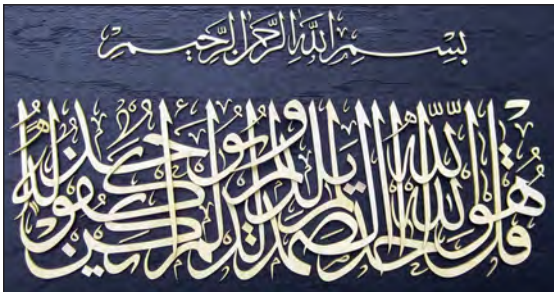 بِسْمِ اللَّهِ الرَّحْمَنِ الرَّحِيمِ
قل هو الله أحد الله الصمد لم يلد ولم يولد ولم يكن له كفوا أحد